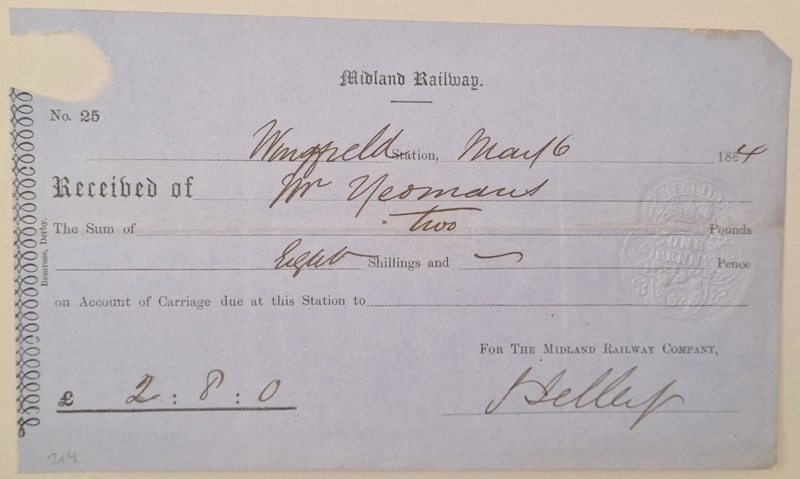 Midland Railway.
No. 25
Wingfield Station, May 6 1864
Received of Mr Yeomans
The Sum of two Pounds
Eight Shillings and — Pence
on Account of Carriage due at this Station to
For The Midland Railway Company,
£ 2 : 8 : 0
Bemrose, Derby.
RECEIPT
ONE
PENNY
214